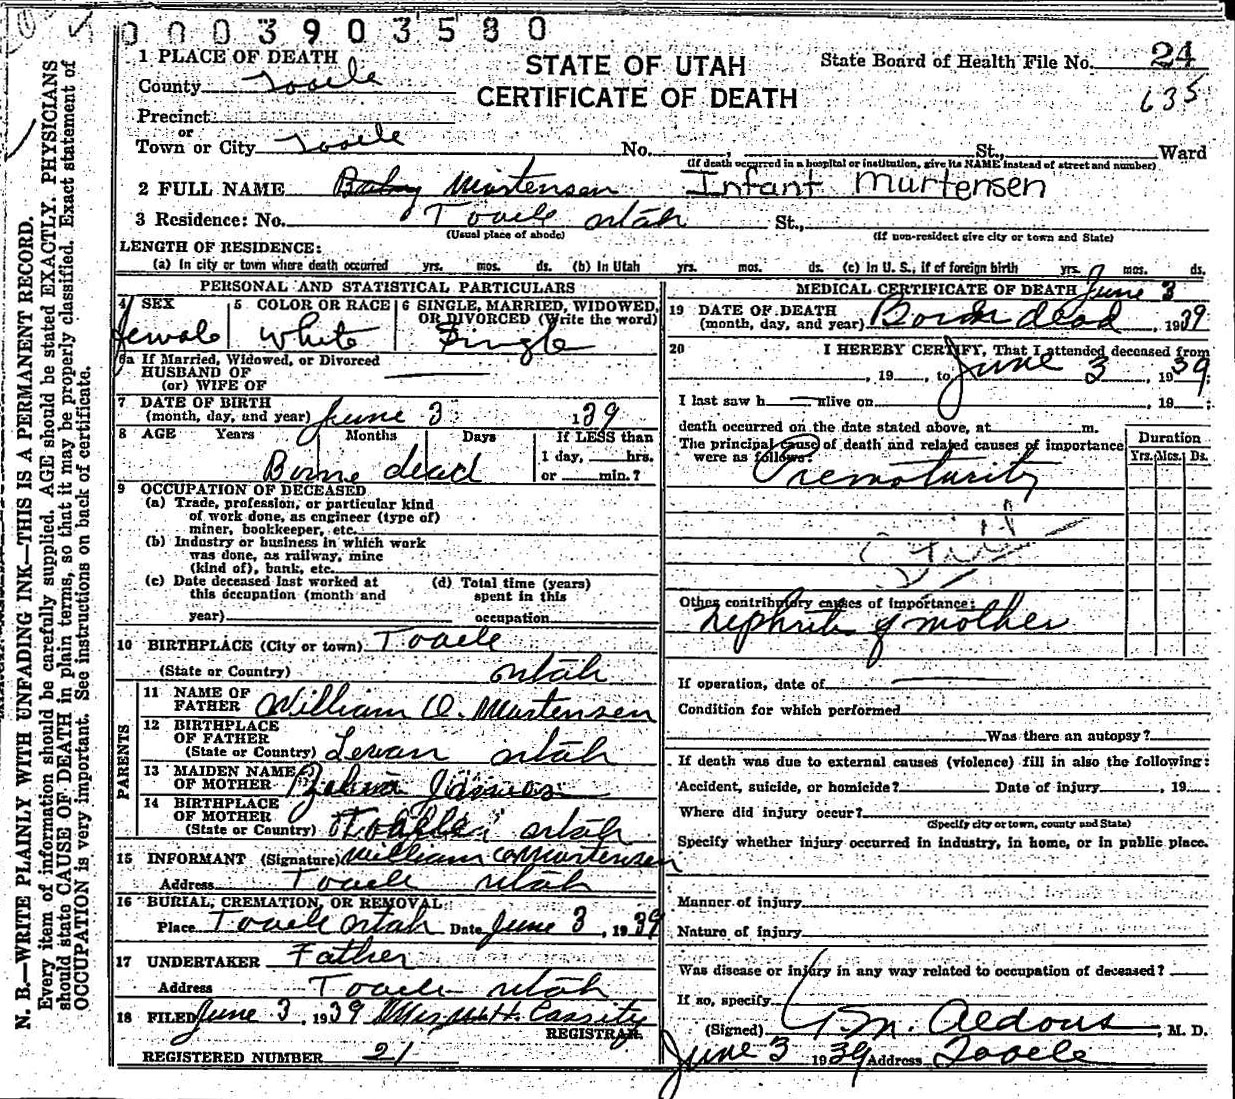 0003903580
1 PLACE OF DEATH
STATE OF UTAH
CERTIFICATE OF DEATH
State Board of Health File No. 24
635
County Tooele
Precinct
or
Town or City Tooele No. , St., Ward
(If death occurred in a hospital or institution, give its NAME instead of street and number)
2 FULL NAME Baby Mortensen Infant Mortensen
3 Residence: No. Tooele Utah St.,
(Usual place of abode) (If non-resident give city or town and State)
LENGTH OF RESIDENCE:
(a) In city or town where death occurred yrs. mos. ds. (b) In Utah yrs. mos. ds. (c) In U. S., if of foreign birth yrs. mos. ds.
PERSONAL AND STATISTICAL PARTICULARS
4 SEX 5 COLOR OR RACE 6 SINGLE, MARRIED, WIDOWED, OR DIVORCED (Write the word)
female white Single
6a If Married, Widowed, or Divorced
HUSBAND OF
(or) WIFE OF
7 DATE OF BIRTH
(month, day, and year) June 3 139
8 AGE Years Months Days If LESS than
1 day, hrs.
or min.?
Borne dead
9 OCCUPATION OF DECEASED
(a) Trade, profession, or particular kind
of work done, as engineer (type of)
miner, bookkeeper, etc.
(b) Industry or business in which work
was done, as railway, mine
(kind of), bank, etc.
(c) Date deceased last worked at (d) Total time (years)
this occupation (month and spent in this
year) occupation
10 BIRTHPLACE (City or town) Tooele
(State or Country) Utah
PARENTS
11 NAME OF
FATHER William O. Mortensen
12 BIRTHPLACE
OF FATHER
(State or Country) Levan Utah
13 MAIDEN NAME
OF MOTHER
14 BIRTHPLACE
OF MOTHER
(State or Country) Tooele Utah
15 INFORMANT (Signature) William O Mortensen
Address Tooele Utah
16 BURIAL, CREMATION, OR REMOVAL:
Place Tooele Utah Date June 3, 1939
17 UNDERTAKER Father
Address Tooele Utah
18 FILED June 3, 1939 H. Cassity
REGISTRAR.
REGISTERED NUMBER 21
MEDICAL CERTIFICATE OF DEATH
June 3
19 DATE OF DEATH
(month, day, and year) Born dead, 1939
20 I HEREBY CERTIFY, That I attended deceased from
, 19 , to June 3, 1939;
I last saw h alive on , 19 ;
death occurred on the date stated above, at m.
The principal cause of death and related causes of importance
were as follows:
Duration
Yrs. Mos. Ds.
Prematurity
Still
Other contributory causes of importance:
Nephritis of mother
If operation, date of
Condition for which performed
Was there an autopsy?
If death was due to external causes (violence) fill in also the following:
Accident, suicide, or homicide? Date of injury , 19 .
Where did injury occur?
(Specify city or town, county and State)
Specify whether injury occurred in industry, in home, or in public place.
Manner of injury
Nature of injury
Was disease or injury in any way related to occupation of deceased?
If so, specify
(Signed) M. Aldous, M. D.
June 3 1939 Address Tooele
N. B.—WRITE PLAINLY WITH UNFADING INK—THIS IS A PERMANENT RECORD.
Every item of information should be carefully supplied. AGE should be stated EXACTLY. PHYSICIANS
should state CAUSE OF DEATH in plain terms, so that it may be properly classified. Exact statement of
OCCUPATION is very important. See instructions on back of certificate.